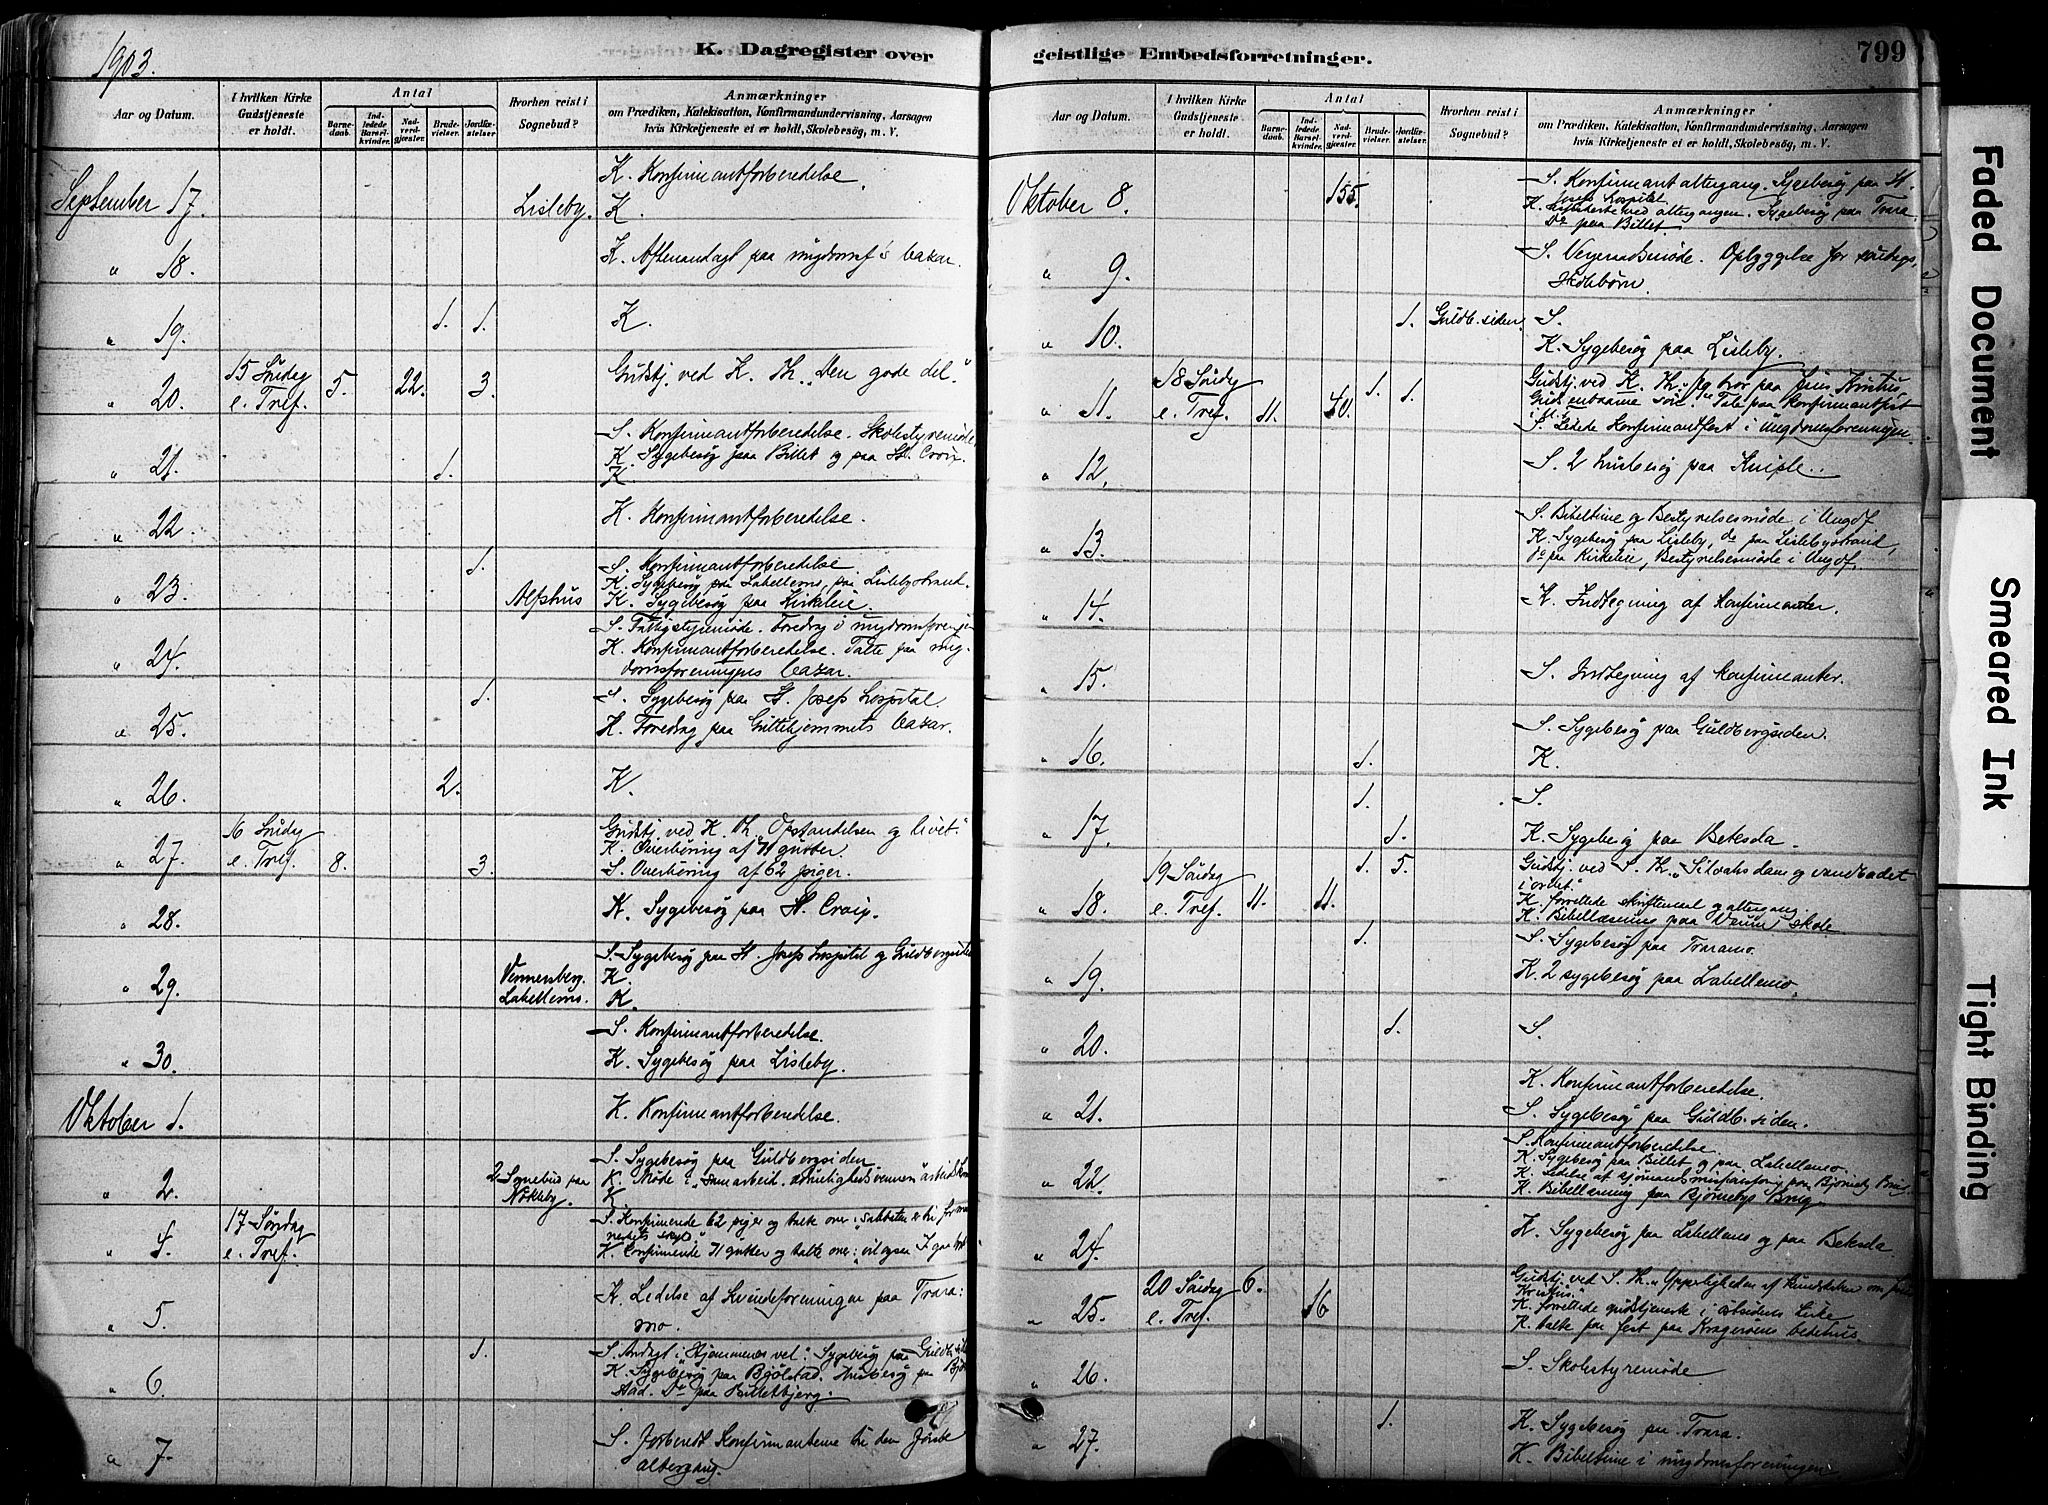 1903.
K. Dagregister over
Aar og Datum.
I hvilken Kirke Gudstjeneste er holdt.
Antal
Barnedaab.
Indledede Barselkvinder.
Nadverdgjæster.
Brudevielser.
Jordfæstelser.
Hvorhen reist i Sognebud?
Anmærkninger
om Prædiken, Katekisation, Konfirmandundervisning, Aarsagen
hvis Kirketjeneste ei er holdt, Skolebesøg, m. V.
K. Konfirmantforberedelse.
September 17. Lisleby. K.
" 18. K. Aftenandagt paa ungdomsf's bazar.
" 19. 1. 1. K.
" 20. 15 Søndag e. Tref. 5. 22. 3. Gudstj. ved K. Th. "Den gode del."
S. Konfirmantforberedelse. Skolestyremøde
" 21. 1. K. Sygebesøg paa Billet og paa St. Croix.
K.
" 22. K. Konfirmantforberedelse.
1. S. Konfirmantforberedelse
" 23. Alfshus K. Sygebesøg paa Labellemo, paa Lislebystrand.
K. Sygebesøg paa Kirkeleie.
S. Fattigstyremøde. Foredrag i
" 24. K. Konfirmantforberedelse. Talte paa ung-
domsforeningens bazar.
1. S. Sygebesøg paa St. Josefs hospital.
" 25. K. Foredrag paa Guttehjemmets bazar.
" 26. 2. K.
" 27. 16 Søndag e. Tref. 8. 3. Gudstj. ved K. Th. "Opstandelsen og livet"
K. Overhøring af 71 gutter.
S. Overhøring af 62 piger.
" 28. K. Sygebesøg paa St. Croix.
S. Sygebesøg paa St. Josefs hospital og Guldbergsiden
" 29. Vennersberg. K.
Labellemo. K.
S. Konfirmantforberedelse.
" 30. K. Sygebesøg paa Lisleby.
Oktober 1. K. Konfirmantforberedelse.
S. Sygebesøg paa Guldbergsiden
" 2. 2 Sognebud paa Nökleby. K. Møde i
K.
" 4. 17 Søndag e. Tref. S. Konfirmerede 62 piger og talte over: "sabbaten er til for
K. Confirmerede 71 gutter og talte over: "vil ogsaa I gaa bort
" 5. K. Ledelse af Kvindeforeningen paa Trara:
mo.
1. S. Andagt i "Hjemmenes vel". Sygebesøg paa
" 6. K. Sygebesøg paa Bjølstad. Husbesøg paa
stad. Do paa Billetbjerg.
" 7. S. Forberedt Konfirmanterne til den første
altergang.
geistlige Embedsforretninger.
799
Aar og Datum.
I hvilken Kirke Gudstjeneste er holdt.
Antal
Barnedaab.
Indledede Barselkvinder.
Nadverdgjæster.
Brudevielser.
Jordfæstelser.
Hvorhen reist i Sognebud?
Anmærkninger
om Prædiken, Katekisation, Konfirmandundervisning, Aarsagen
hvis Kirketjeneste ei er holdt, Skolebesøg, m. V.
Oktober 8. 155. S. Konfirmant altergang. Sygebesøg paa St.
Josefs hospital
K. Assisterte ved altergangen. Sygebesøg paa Trara.
Do paa Billet.
" 9. S. Vergeraadsmøde. Opbyggelse for søndags-
skolebørn.
" 10. 1. Guldb. siden. S.
K. Sygebesøg paa Lisleby.
" 11. 18 Søndag e. Tref. 11. 40. 1. 1. Gudstj. ved K. Th. "Jeg tror paa Jesus Kristus
Guds enbaarne søn." Tale paa Konfirmantfest
S. Ledede Konfirmandfest i Ungdomsforeningen.
" 12. S. 2 husbesøg paa Kniple.
S. Bibeltime og Bestyrelsesmøde i Ungdf
" 13. K. Sygebesøg paa Lisleby, do paa Lislebystrand,
do paa Kirkeleie, Bestyrelsesmøde i Ungdf.
" 14. K. Indtegning af Konfirmanter.
" 15. S. Indtegning af Konfirmanter.
S. Sygebesøg paa Guldbergsiden.
" 16. 1. K.
1. S.
" 17. 1. K. Sygebesøg paa Betesda.
" 18. 19 Søndag e. Tref. 11. 11. 1. 5. Gudstj. ved S. Th. "Siloahs dam og vandbadet
i ordet".
K. forrettede skriftemaal og altergang.
K. Bibellæsning paa Veum skole
1. S. Sygebesøg paa Traramo.
" 19. K. 2 sygebesøg paa Labellemo.
" 20. 1. S
K. Konfirmantforberedelse.
" 21. S. Sygebesøg paa Guldb. siden.
S. Konfirmantforberedelse.
" 22. K. Sygebesøg paa Billet og paa Labellemo.
K. Ledelse af sjømandsmisfsforening paa Bjørneby Brug.
K. Bibellæsning paa Bjørnebys Brug
" 24. K. Sygebesøg paa Labellemo og paa Betesda
" 25. 20 Søndag e. Tref. 6. 16 Gudstj. ved S. Th. "Ypperligheden af kundskaben om Jesus
Kristus".
K. forrettede gudstjeneste i kirke
K. talte paa fest paa Kragerøens bedehus.
" 26. S. Skolestyremøde
" 27. 1. K. Sygebesøg paa Trara.
K. Bibeltime i ungdomsforeningen
Faded Document
Smeared Ink
Tight Binding